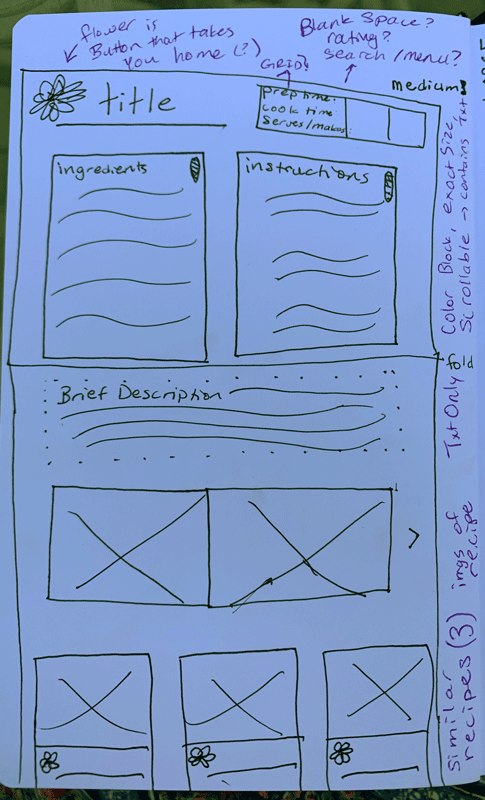 flower is
Button that takes
you home (?)
Blank Space?
rating?
search/menu?
GRID?
medium
title
prep time:
cook time
serves/makes:
ingredients
instructions
Color Block, exact size,
Scrollable → contains txt
fold
Brief Description
Txt Only
imgs of
recipe
>
Similar
recipes (3)